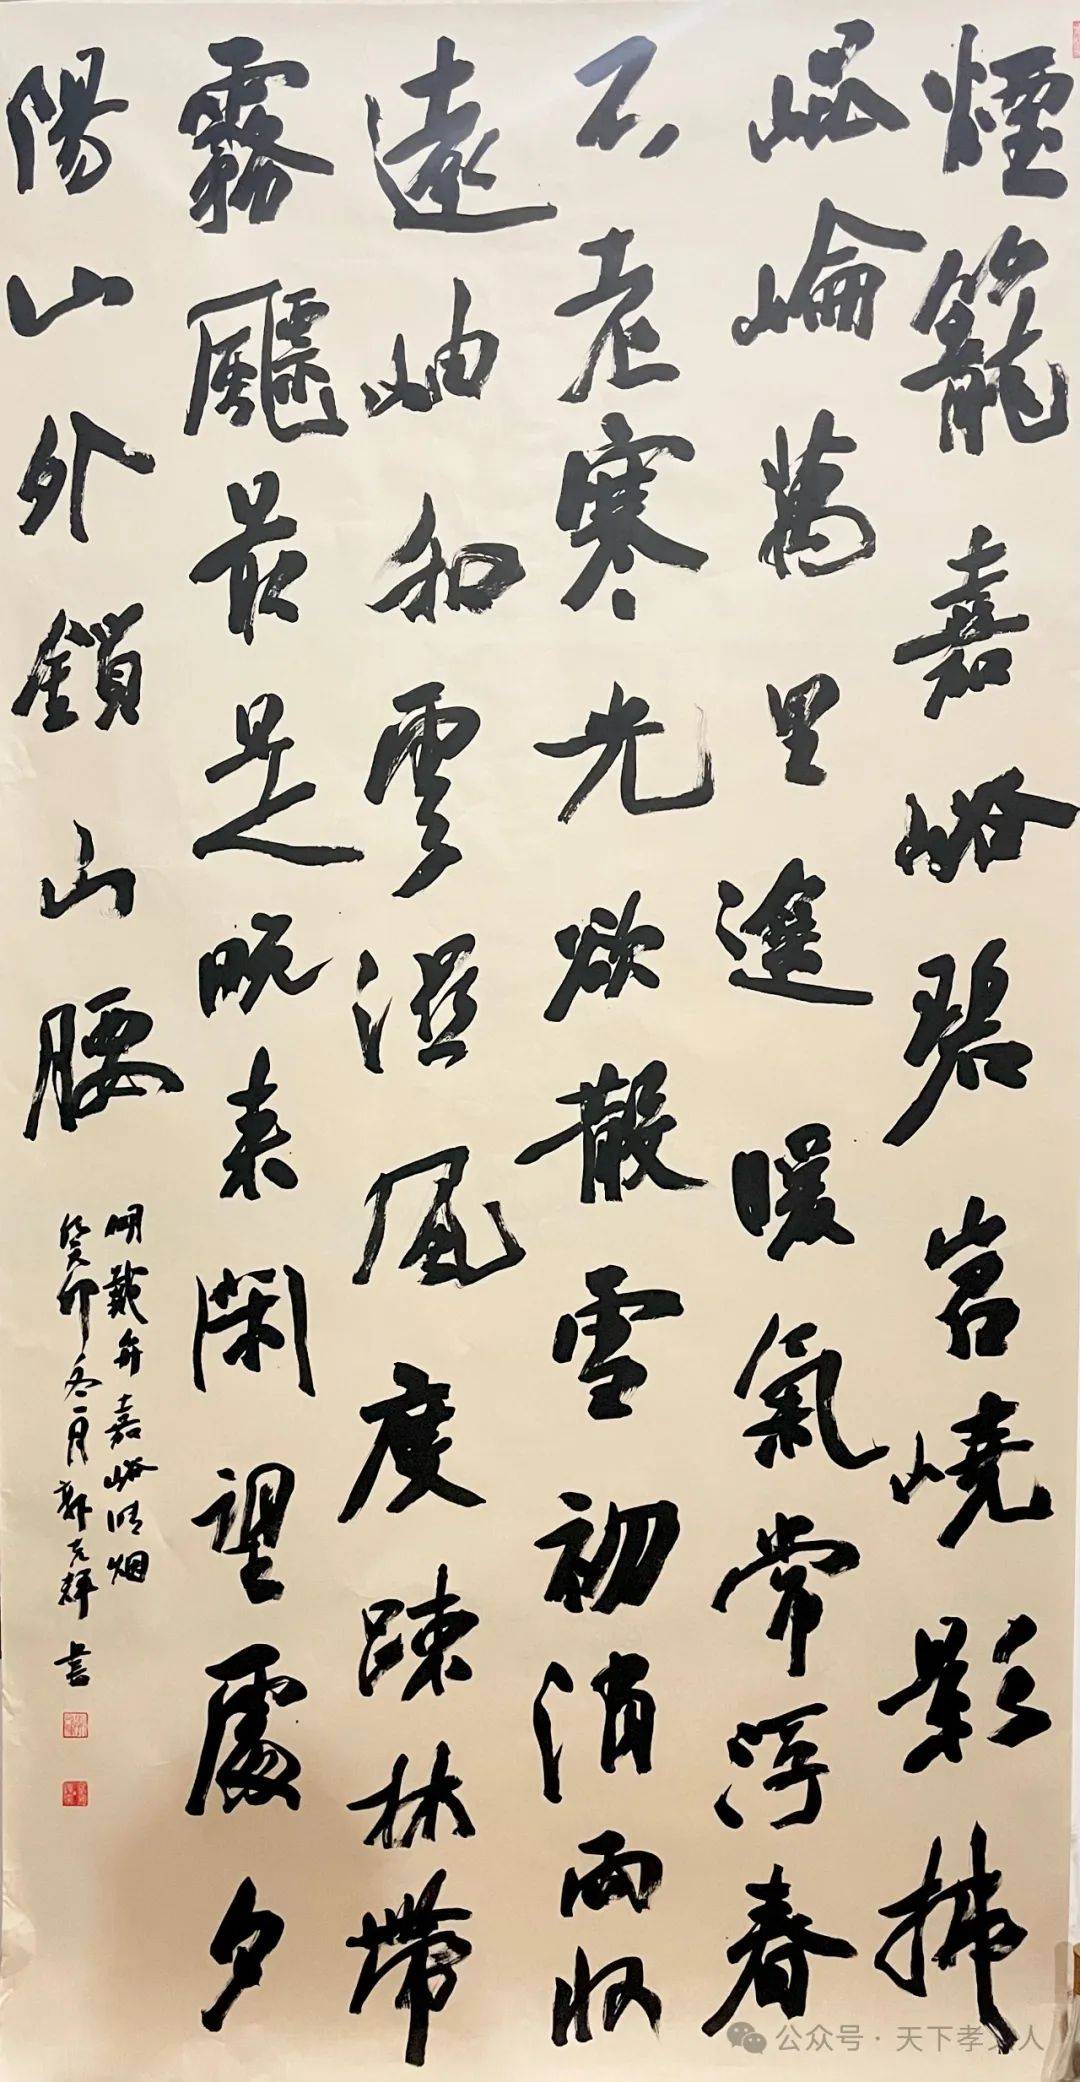 煙籠嘉峪碧岧嶢影拂
崐崘萬里遙暖氣常浮春
不老寒光欲散雪初消雨收
遠岫和雲濕風度疎林帶
霧飄最是晚来閑望處夕
陽山外鎖山腰
明戴弁嘉峪晴烟
癸卯冬一月郭克輝書
公众号·天下孝文人